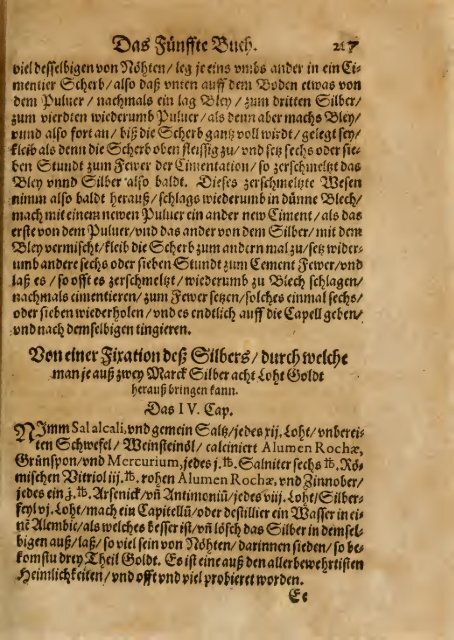 Das Fünffte Buch. 217
viel desselbigen von Nöhten/ leg je eins vmbs ander in ein Ci-
mentier Scherb/ also daß vnten auff dem Boden etwas von
dem Puluer/ nachmals ein lag Bley/ zum dritten Silber/
zum vierdten wiederumb Puluer/ als denn aber machs Bley/
vnnd also fort an/ biß die Scherb gantz voll wirdt/ gelegt sey/
kleib als denn die Scherb oben fleissig zu/ vnd setz sechs oder sie-
ben Stundt zum Fewer der Cimentation/ so zerschmeltzt das
Bley vnnd Silber also baldt. Dieses zerschmeltzte Wesen
nimm also baldt herauß/ schlags wiederumb in dünne Blech/
mach mit einem newen Puluer ein ander new Ciment/ als das
erste von dem Puluer/ vnd das ander von dem Silber/ mit dem
Bley vermischt/ kleib die Scherb zum andern mal zu/ setz wider-
umb andere sechs oder sieben Stundt zum Cement Fewer/ vnd
laß es/ so offt es zerschmeltzt/ wiederumb zu Blech schlagen/
nachmals cimentieren/ zum Fewer setzen/ solches einmal sechs/
oder sieben wiederholen/ vnd es endtlich auff die Capell geben/
vnd nach demselbigen tingieren.
Von einer Fixation deß Silbers/ durch welche
man je auß zwey Marck Silber acht Loht Goldt
herauß bringen kann.
Das IV. Cap.
NImm Sal alcali, vnd gemein Saltz/ jedes xij. Loht/ vnberei-
ten Schwefel/ Weinsteinöl/ calciniert Alumen Rochæ,
Grünspon/ vnd Mercurium, jedes j. ℔. Salniter sechs ℔. Rö-
mischen Vitriol iij. ℔. rohen Alumen Rochæ, vnd Zinnober/
jedes ein j. ℔. Arsenick/ vñ Antimoniũ/ jedes viij. Loht/ Silber-
feyl vj. Loht/ mach ein Capitellũ/ oder destillier ein Wasser in ei-
ne Alembic/ als welches besser ist/ vñ lösch das Silber in demsel-
bigen auß/ laß/ so viel sein von Nöhten/ darinnen sieden/ so be-
komstu drey Theil Goldt. Es ist eine auß den allerbewehrtisten
Heimlichkeiten/ vnd offt vnd viel probieret worden.
Ee